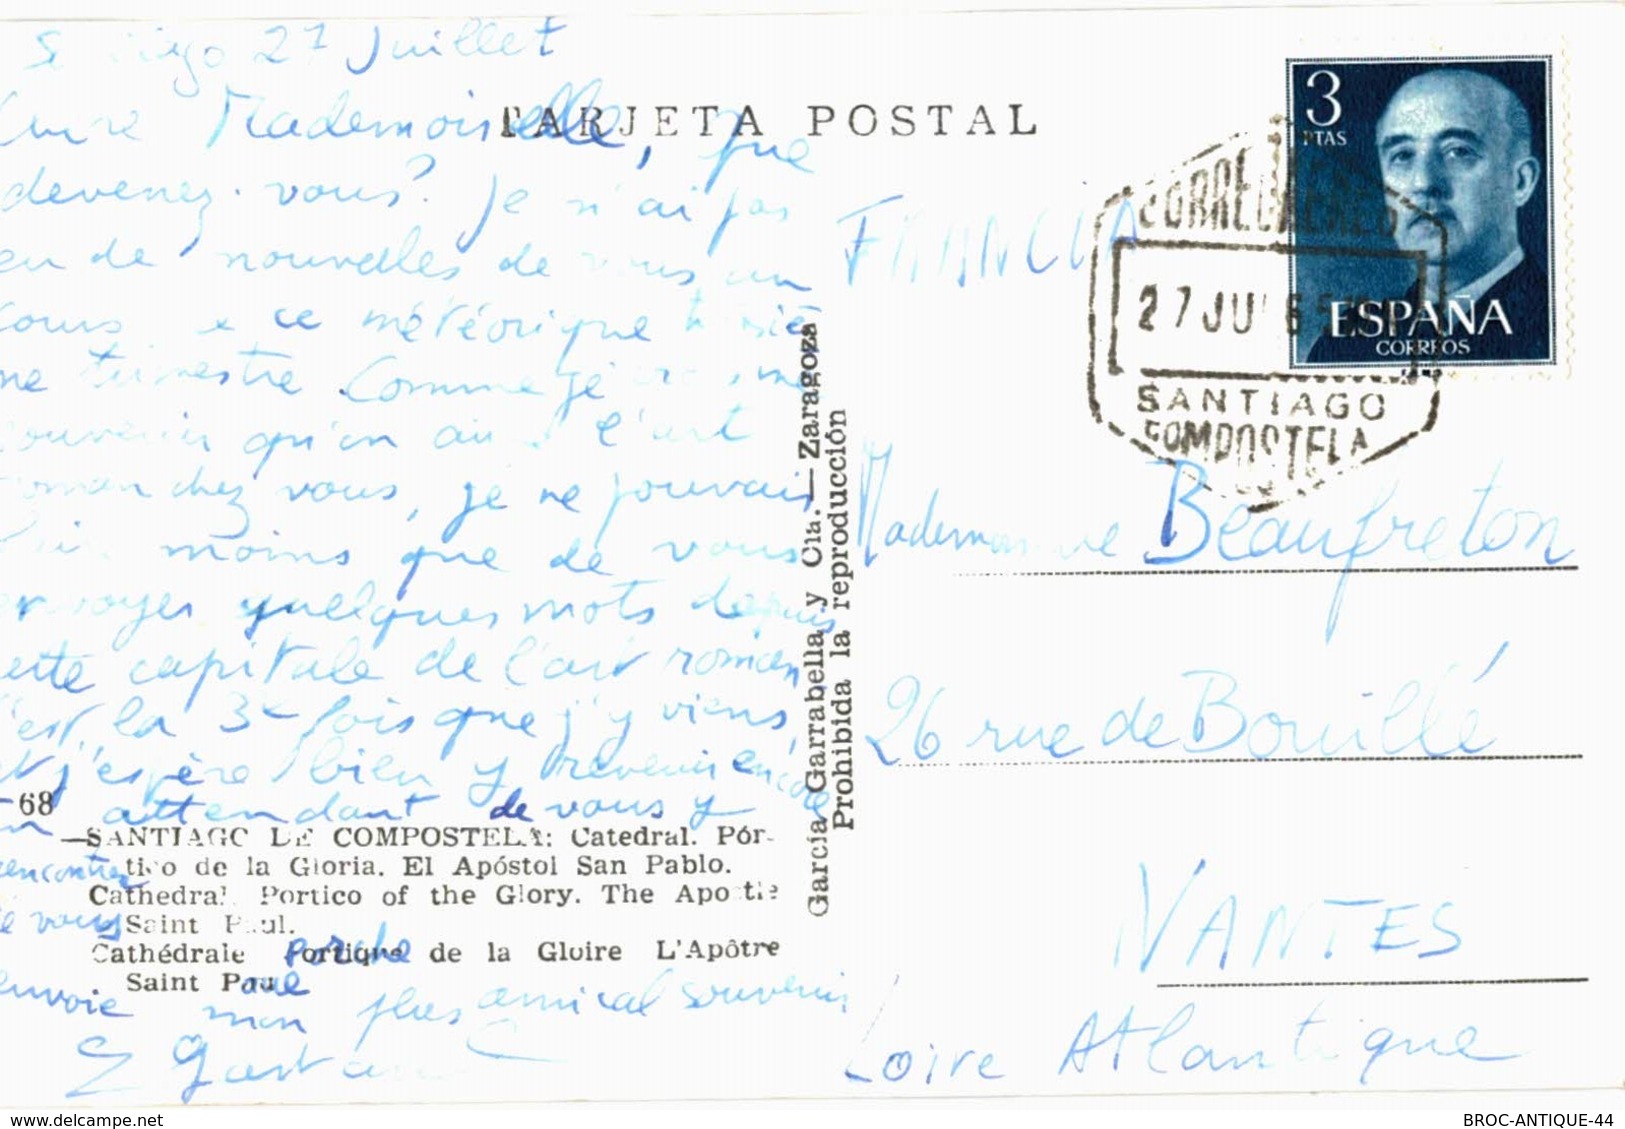 27 Juillet
Mademoiselle, que
devenez-vous? Je n'ai pas
de nouvelles de vous
ce météorique
trimestre. Comme je
qu'on l'art
roman chez vous, je ne pouvais
moins que de vous
envoyer quelques mots depuis
cette capitale de l'art roman
C'est la 3e fois que j'y viens,
et j'espère bien y revenir encore
en attendant de vous y
rencontrer
je vous
envoie mon plus amical souvenir
-68
—SANTIAGO DE COMPOSTELA: Catedral. Pór-
tico de la Gloria. El Apóstol San Pablo.
Cathedral. Portico of the Glory. The Apostle
Saint Paul.
Cathédrale Portique de la Gloire L'Apôtre
Saint Paul
porche
TARJETA POSTAL
García Garrabella y Cía.—Zaragoza
Prohibida la reproducción
3
PTAS
ESPAÑA
CORREOS
CORREO AEREO
27 JUL 65
SANTIAGO
COMPOSTELA
FRANCIA
Mademoiselle Beaufreton
26 rue de Bouillé
NANTES
Loire Atlantique
delcampe.net
BROC-ANTIQUE-44